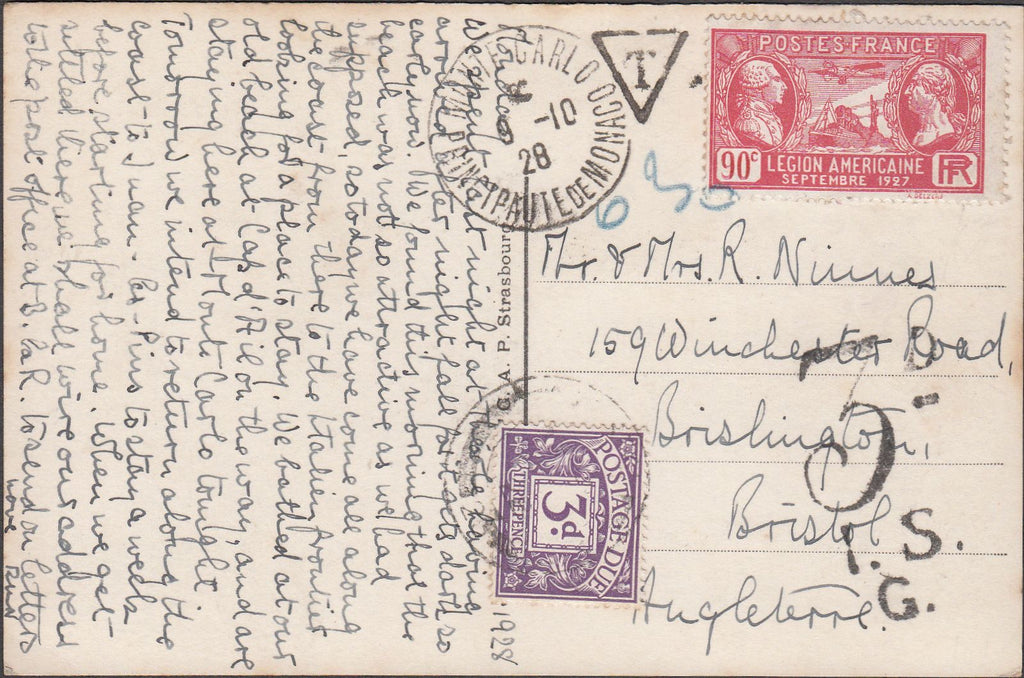 Friday
We spent last night at Le Rabou
arrived after night fall for it gets dark so
early now. We found this morning that the
beach was not so attractive as we had
supposed, so today we have come all along
the coast from there to the Italien frontier
looking for a place to stay. We bathed at our
old beach at Cap d'Ail on the way, and are
staying here at Monte Carlo tonight.
Tomorrow we intend to return along the
coast to Juan-les-Pins to stay a week
before starting for home. When we get
settled there we shall wire our address
to the post office at B. la R. to send on letters
love
MONTE CARLO
6 -10
28
PRINCIPAUTE DE MONACO
T
POSTES-FRANCE
90c
LEGION AMERICAINE
SEPTEMBRE 1927
RF
630
Mr. & Mrs. R. Ninnes
159 Winchester Road,
Brislington,
Bristol
Angleterre.
3D
I.S.
G.
POSTAGE DUE
3d.
THREEPENCE
A. P. Strasbourg
1928